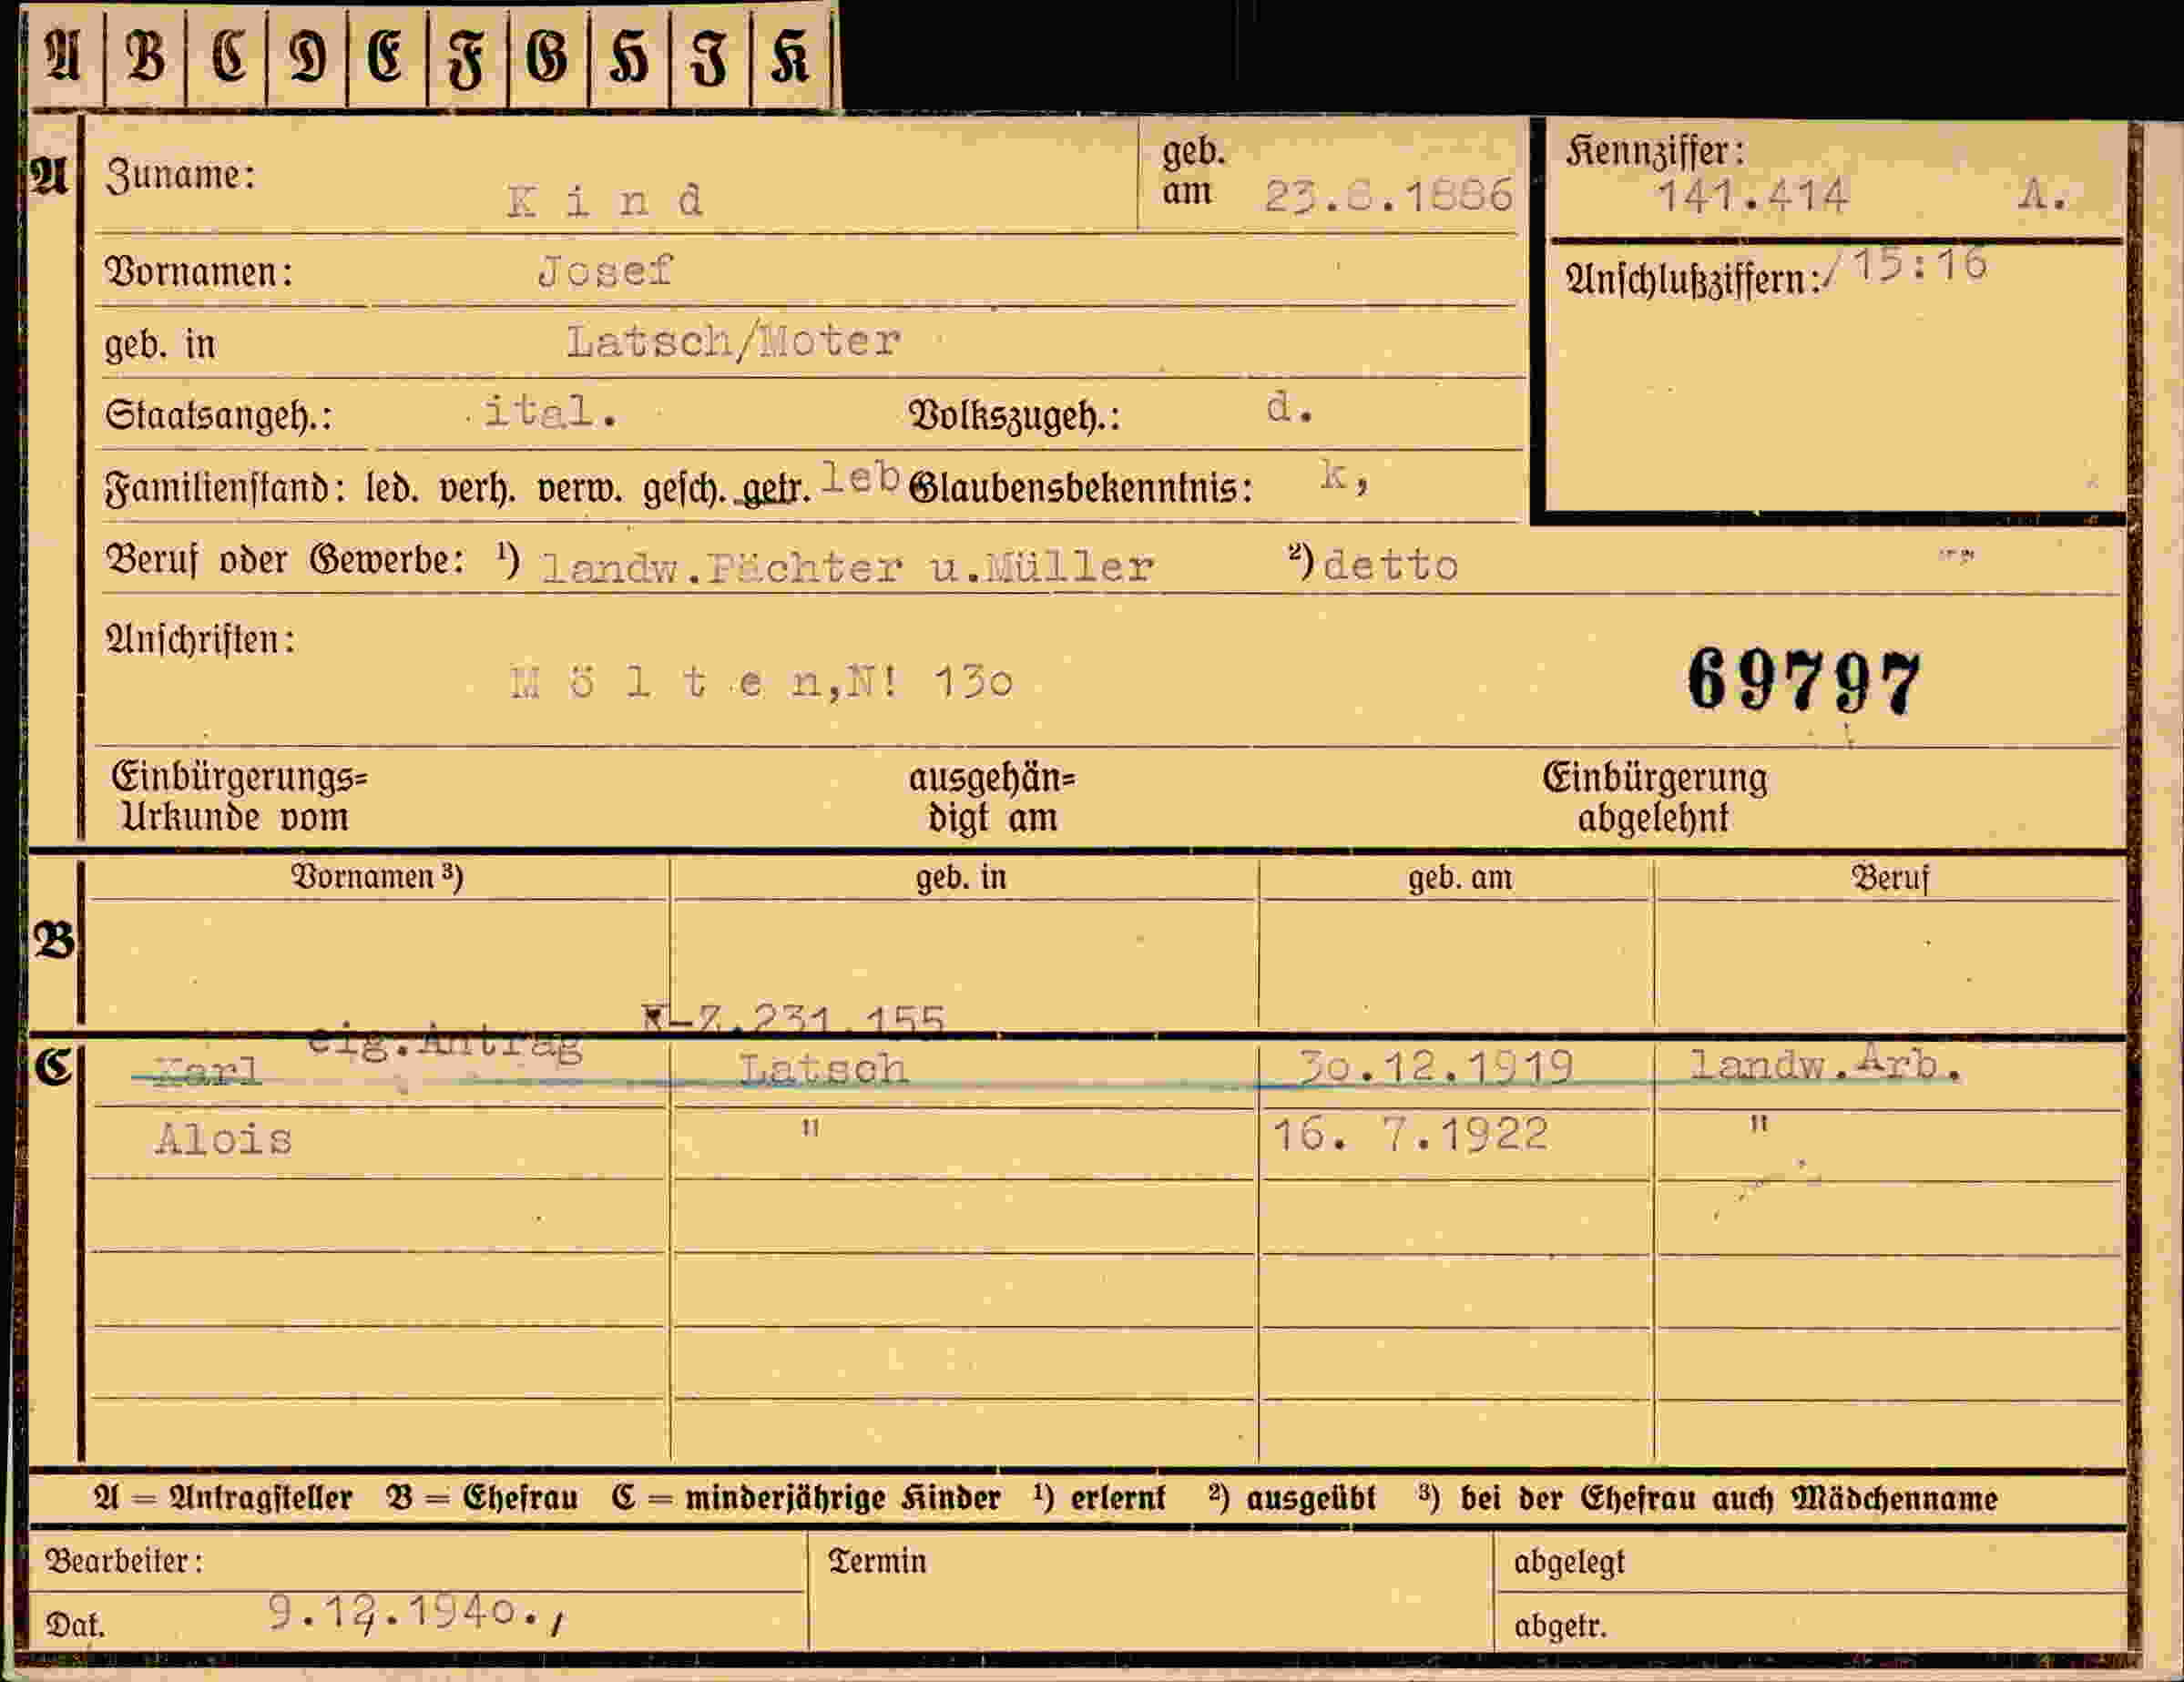 A B C D E F G H I K
A Zuname: Kind geb. am 23.8.1886 Kennziffer: 141.414 A.
Vornamen: Josef Anschlußziffern:/15:16
geb. in Latsch/Moter
Staatsangeh.: ital. Volkszugeh.: d.
Familienstand: led. verh. verw. gesch. getr. leb Glaubensbekenntnis: k,
Beruf oder Gewerbe: ¹) landw.Pächter u.Müller ²) detto
Anschriften:
Mölten,N! 13o 69797
Einbürgerungs= ausgehän= Einbürgerung
Urkunde vom digt am abgelehnt
Vornamen ³) geb. in geb. am Beruf
B
K-Z.231.155
eig.Antrag
C Karl Latsch 3o.12.1919 landw.Arb.
Alois " 16. 7.1922 "
A = Antragsteller B = Ehefrau C = minderjährige Kinder ¹) erlernt ²) ausgeübt ³) bei der Ehefrau auch Mädchenname
Bearbeiter: Termin abgelegt
Dat. 9.12.194o., abgetr.